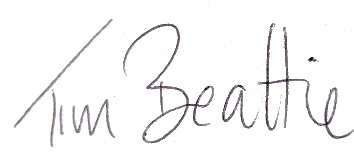 Tim Beattie